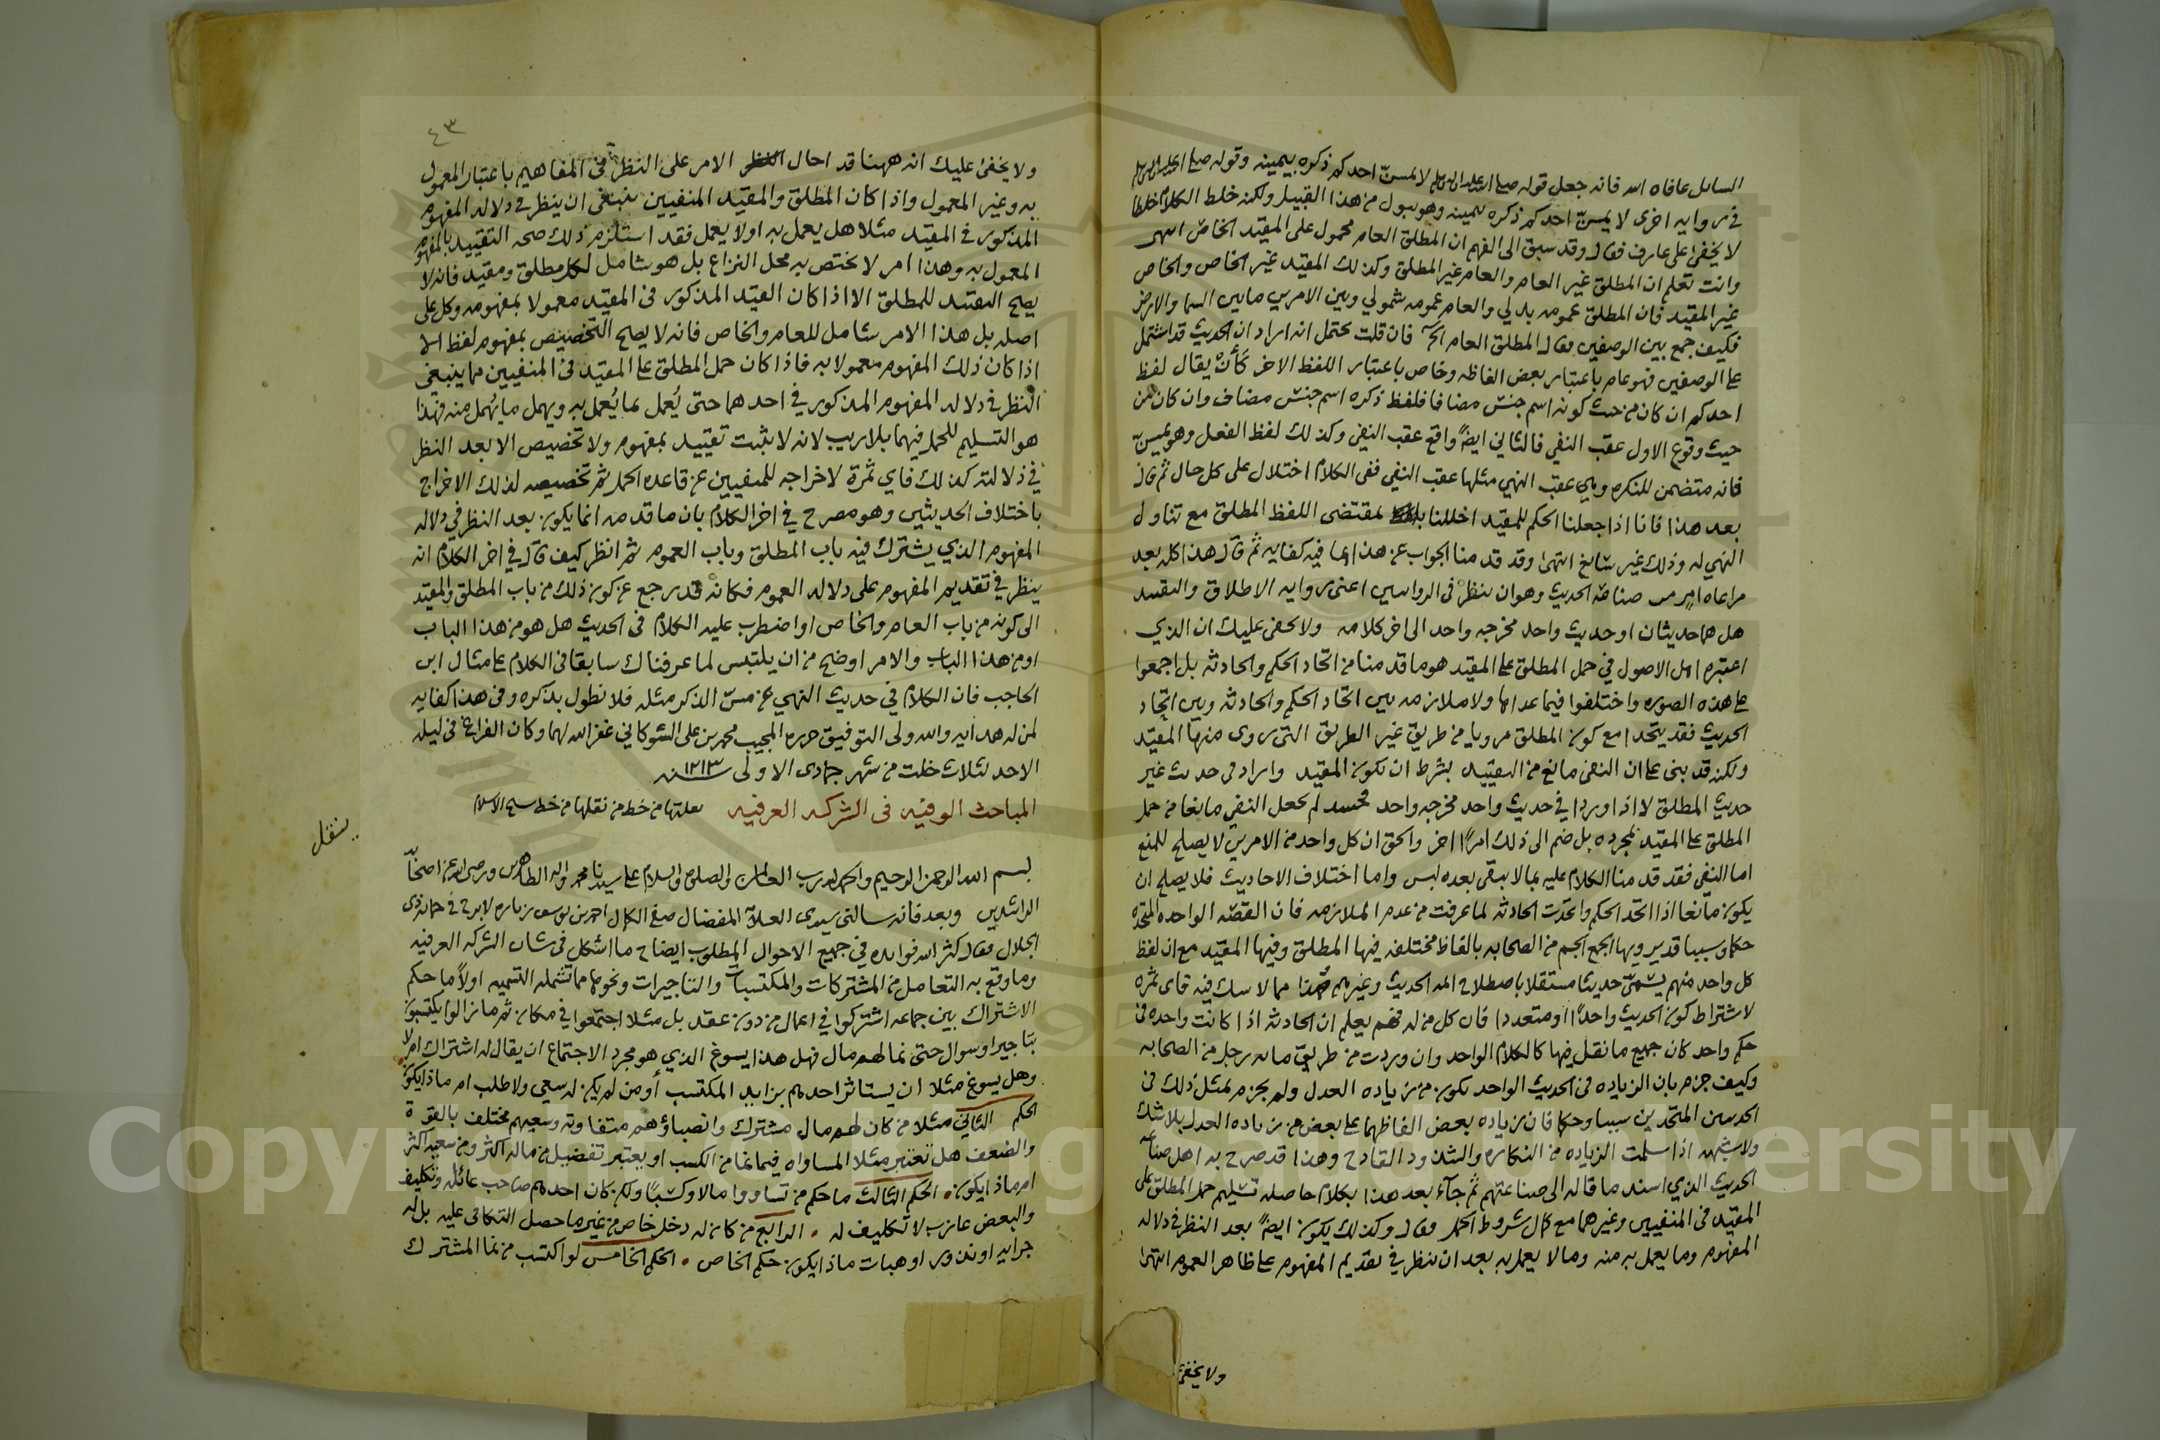 السائل عافاه الله فانه جعل قوله صلى الله عليه واله وسلم لا يمسن احدكم ذكره بيمينه وقوله صلى الله عليه واله وسلم
في روايه اخرى لا يمسن احدكم ذكره بيمينه وهو يبول من هذا القبيل ولكن خلط الكلام خلطا
لا يخفى على عارف فقال وقد سبق الى الفهم ان المطلق العام محمول على المقيد الخاص انتهى
وانت تعلم ان المطلق غير العام والعام غير المطلق وكذلك المقيد غير الخاص والخاص
غير المقيد فان المطلق عمومه بدلي والعام عمومه شمولي وبين الامرين ما بين السما والارض
فكيف جمع بين الوصفين فقال المطلق العام الخ فان قلت يحتمل انه اراد ان الحديث قد اشتمل
على الوصفين فهو عام باعتبار بعض الفاظه وخاص باعتبار اللفظ الاخر كأنه يقال لفظ
احدكم ان كان من حيث كونه اسم جنس مضافا فلفظ ذكره اسم جنس مضاف وان كان من
حيث وقوع الاول عقب النفي فالثاني ايضا واقع عقب النفي وكذلك لفظ الفعل وهو يمسن
فانه متضمن للنكره وهي عقب النهي مثلها عقب النفي ففي الكلام اختلال على كل حال ثم قال
بعد هذا فانا اذا جعلنا الحكم للمقيد اخللنا بمقتضى اللفظ المطلق مع تناول
النهي له وذلك غير سائغ انتهى وقد قدمنا الجواب عن هذا بما فيه كفايه ثم قال هذا كله بعد
مراعاه امر من صناعة الحديث وهو ان ينظر في الروايتين اعني روايه الاطلاق والتقييد
هل هما حديثان او حديث واحد مخرجه واحد الى اخر كلامه ولا يخفى عليك ان الذي
اعتبره اهل الاصول في حمل المطلق على المقيد هو ما قدمنا من اتحاد الحكم والحادثه بل اجمعوا
على هذه الصوره واختلفوا فيما عداها ولا ملازمه بين اتحاد الحكم والحادثه وبين اتحاد
الحديث فقد يتحدا مع كون المطلق مرويا من طريق غير الطريق التي روى منها المقيد
ولكنه قد بنى على ان النفي مانع من التقييد بشرط ان يكون المقيد واراد في حديث غير
حديث المطلق لا اذا وردا في حديث واحد مخرجه واحد فحينئذ لم يجعل النفي مانعا من حمل
المطلق على المقيد بمجرده بل ضم الى ذلك امرا اخر والحق ان كل واحد من الامرين لا يصلح للمنع
اما النفي فقد قدمنا الكلام عليه بما لا يبقى بعده لبس واما اختلاف الاحاديث فلا يصلح ان
يكون مانعا اذا اتحد الحكم واتحدت الحادثه لما عرفت من عدم الملازمه فان القصه الواحده المتحده
حكما وسببا قد يرويها الجمع الجم من الصحابه بالفاظ مختلفه فيها المطلق وفيها المقيد مع ان لفظ
كل واحد منهم يسمى حديثا مستقلا باصطلاح ائمه الحديث وغيرهم وهذا مما لا شك فيه فاي ثمره
لاشتراط كون الحديث واحدا او متعددا فان كل من له فهم يعلم ان الحادثه اذا كانت واحده في
حكم واحد كان جميع ما نقل فيها كالكلام الواحد وان وردت من طريق مائه رجل من الصحابه
وكيف جزم بان الزياده في الحديث الواحد تكون من زياده العدل ولم يجزم بمثل ذلك في
الحديثين المتحدين سببا وحكما فان زياده بعض الفاظهما على بعض من زياده العدل بلا شك
ولا شبهه اذا سلمت الزياده من النكاره والشذوذ القادح وهذا قد صرح به اهل صناعه
الحديث الذي اسند ما قاله الى صناعتهم ثم جاء بعد هذا بكلام حاصله تسليم حمل المطلق على
المقيد في المنفيين وغيرهما مع كمال شروط الحمل فقال وكذلك يكون ايضا بعد النظر في دلاله
المفهوم وما يعمل به منه وما لا يعمل به بعد ان ننظر في تقديم المفهوم على ظاهر العموم انتهى
ولا يخفى
٤٣
ولا يخفى عليك انه ههنا قد احال الامر على النظر في المفاهيم باعتبار المعمول
به وغير المعمول واذا كان المطلق والمقيد المنفيين ينبغي ان ينظر في دلاله المفهوم
المذكور في المقيد مثلا هل يعمل به او لا يعمل فقد استلزم ذلك صحه التقييد بالمفهوم
المعمول به وهذا امر لا يختص به محل النزاع بل هو شامل لكل مطلق ومقيد فانه لا
يصلح المقيد للمطلق الا اذا كان القيد المذكور في المقيد معمولا بمفهومه وكل على
اصله بل هذا الامر شامل للعام والخاص فانه لا يصلح التخصيص بمفهوم لفظ الا
اذا كان ذلك المفهوم معمولا به فاذا كان حمل المطلق على المقيد في المنفيين مما ينبغي
النظر في دلاله المفهوم المذكور في احدهما حتى يُعمل بما يُعمل به ويهمل ما يُهمل منه فهذا
هو التسليم للحمل فيهما بلا ريب لانه لا يثبت تقييد بمفهوم ولا تخصيص الا بعد النظر
في دلالته كذلك فاي ثمرة لاخراجه للمنفيين عن قاعده الحمل ثم تخصيصه لذلك الاخراج
باختلاف الحديثين وهو مصرح في اخر الكلام بان ما قدمه انما يكون بعد النظر في دلاله
المفهوم الذي يشترك فيه باب المطلق وباب العموم ثم انظر كيف قال في اخر الكلام انه
ينظر في تقديم المفهوم على دلاله العموم فكأنه قد رجع عن كون ذلك من باب المطلق والمقيد
الى كونه من باب العام والخاص او اضطرب عليه الكلام في الحديث هل هو من هذا الباب
او من هذا الباب والامر اوضح من ان يلتبس لما عرفناك سابقا في الكلام على مثال ابن
الحاجب فان الكلام في حديث النهي عن مس الذكر مثله فلا نطول بذكره وفي هذا كفايه
لمن له هدايه والله ولي التوفيق حرره المجيب محمد بن علي الشوكاني غفر الله لهما وكان الفراغ في ليله
الاحد لثلاث خلت من شهر جمادى الاولى سنه ١٢١٣
المباحث الوفيه في الشركه العرفيه نقلتها من خط من نقلها من خط شيخ الاسلام
ينقل
بسم الله الرحمن الرحيم والحمد لله رب العالمين والصلوه والسلام على سيدنا محمد واله الطاهرين ورضي الله عن اصحابه
الراشدين وبعد فانه سالني سيدي العلامه المفضال صفي الكمال احمد بن يوسف زباره لا برح في حمايه ذي
الجلال فقال كثر الله فوائده في جميع الاحوال المطلوب ايضاح ما اشكل في شان الشركه العرفيه
وما وقع به التعامل من المشتركات والمكتسبات والتاجيرات ونحوها مما تشمله التسميه اولا ما حكم
الاشتراك بين جماعه اشتركوا في اعمال من دون عقد بل مثلا اجتمعوا في مكان ثم ما زالوا يكتسبون
بتاجير او سوال حتى نما لهم مال فهل هذا يسوغ الذي هو مجرد الاجتماع ان يقال له اشتراك ام لا
وهل يسوغ مثلا ان يستاثر احدهم بزايد المكتسب أو من لم يكن له سعي ولا طلب ام ماذا يكون
الحكم الثاني مثلا من كان لهم مال مشترك وانصباؤهم متفاوته وسعيهم مختلف بالقوة
والضعف هل تعتبر مثلا المساواه فيما نما من الكسب او يعتبر تفضيل من ماله اكثر ومن سعيه اكثر
ام ماذا يكون الحكم الثالث ما حكم من تساووا مالا وكسبا ولكن كان احدهم صاحب عائله وتكليف
والبعض عازب لا تكليف له الرابع من كان له دخل خاص من غير ما حصل التكافي عليه بل له
جرايه او نذور او هبات ماذا يكون حكم الخاص الحكم الخامس لو اكتسب من نما المشترك